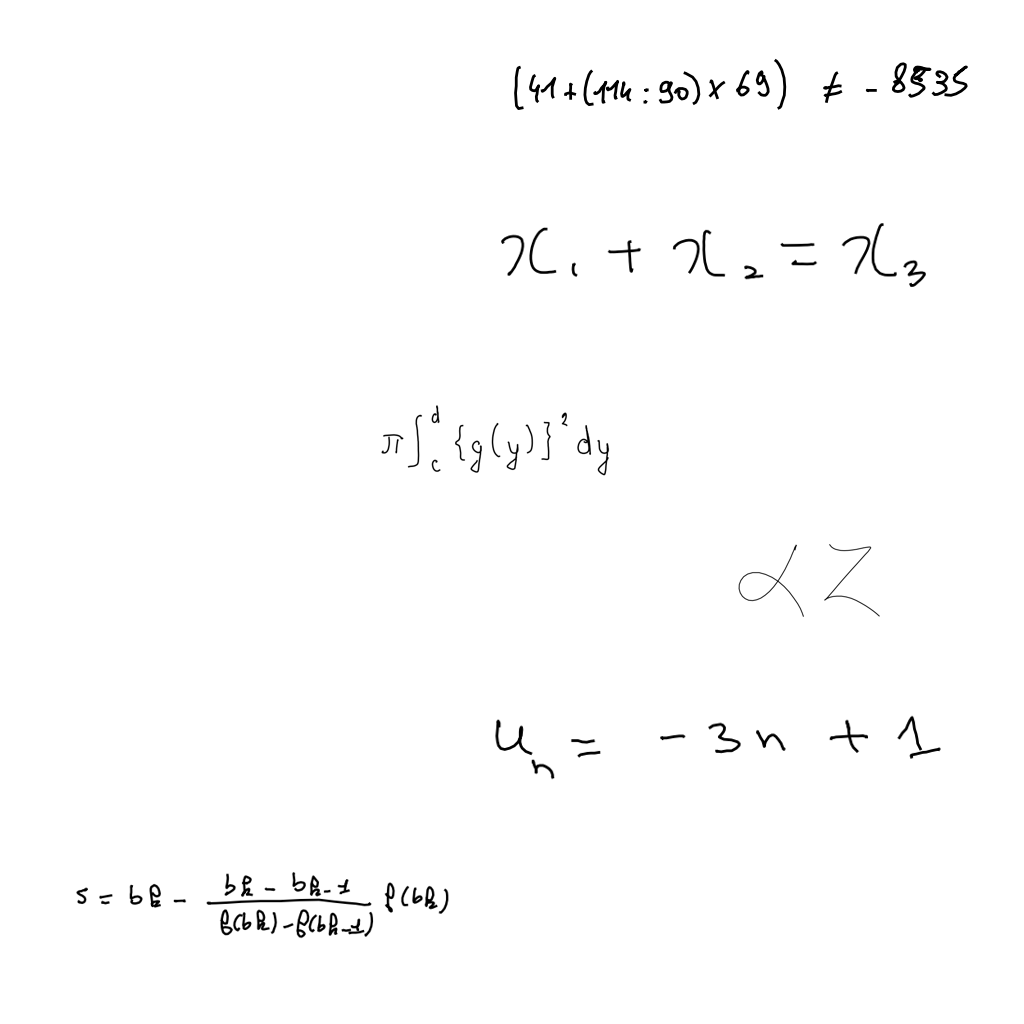 (41+(114:90)×69) ≠ -8535
x₁ + x₂ = x₃
π∫_c^d {g(y)}² dy
αz
uₙ = -3n + 1
s = bₖ - (bₖ - bₖ₋₁)/(f(bₖ) - f(bₖ₋₁)) f(bₖ)